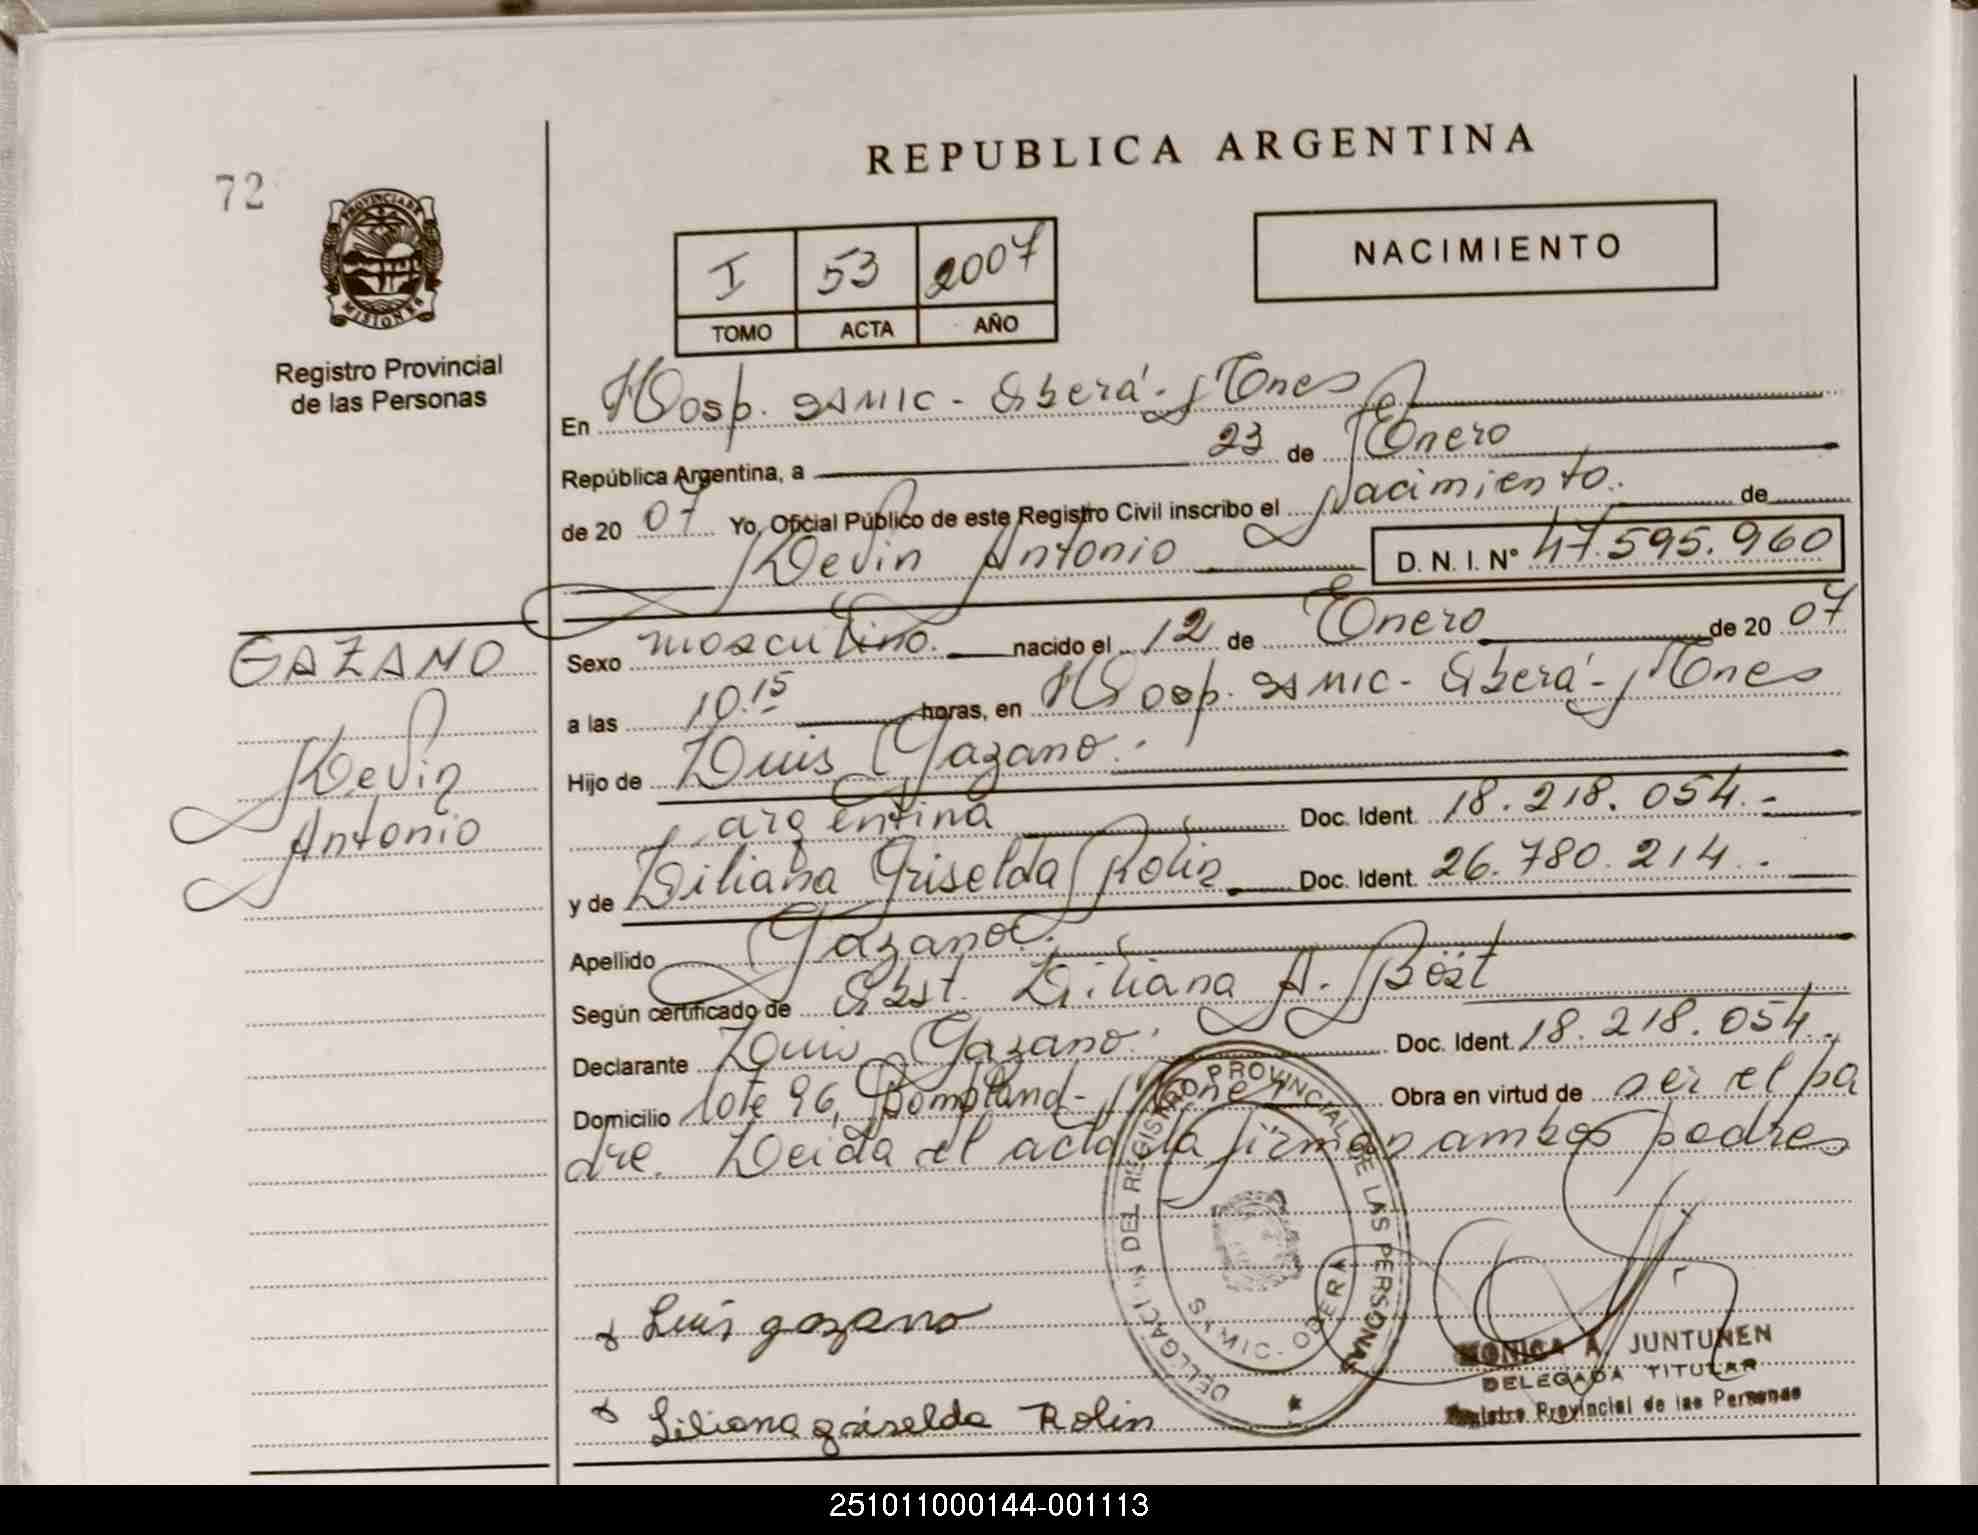 REPUBLICA ARGENTINA
72
PROVINCIA DE
MISIONES
Registro Provincial
de las Personas
I 53 2007
TOMO ACTA AÑO
NACIMIENTO
En Hosp. SAMIC - Oberá - Mnes
República Argentina, a 23 de Enero
de 20 07 Yo, Oficial Público de este Registro Civil inscribo el Nacimiento. de
Kevin Antonio D. N. I. N° 47.595.960
GAZANO
Kevin
Antonio
Sexo masculino. nacido el 12 de Enero de 20 07
a las 10.15 horas, en Hosp. SAMIC - Oberá - Mnes
Hijo de Luis Gazano.
argentina Doc. Ident. 18.218.054.-
y de Liliana Griselda Rolin Doc. Ident. 26.780.214.-
Apellido Gazano.
Según certificado de Obst. Liliana A.
Declarante Luis Gazano. Doc. Ident. 18.218.054.-
Domicilio lote 96, Bompland - Mnes Obra en virtud de ser el pa
dre. Leida el acta la firman ambos padres
Luis gazano
Liliana griselda Rolin
DELEGACION DEL REGISTRO PROVINCIAL DE LAS PERSONAS
SAMIC - OBERA
MONICA A. JUNTUNEN
DELEGADA TITULAR
Registro Provincial de las Personas
251011000144-001113